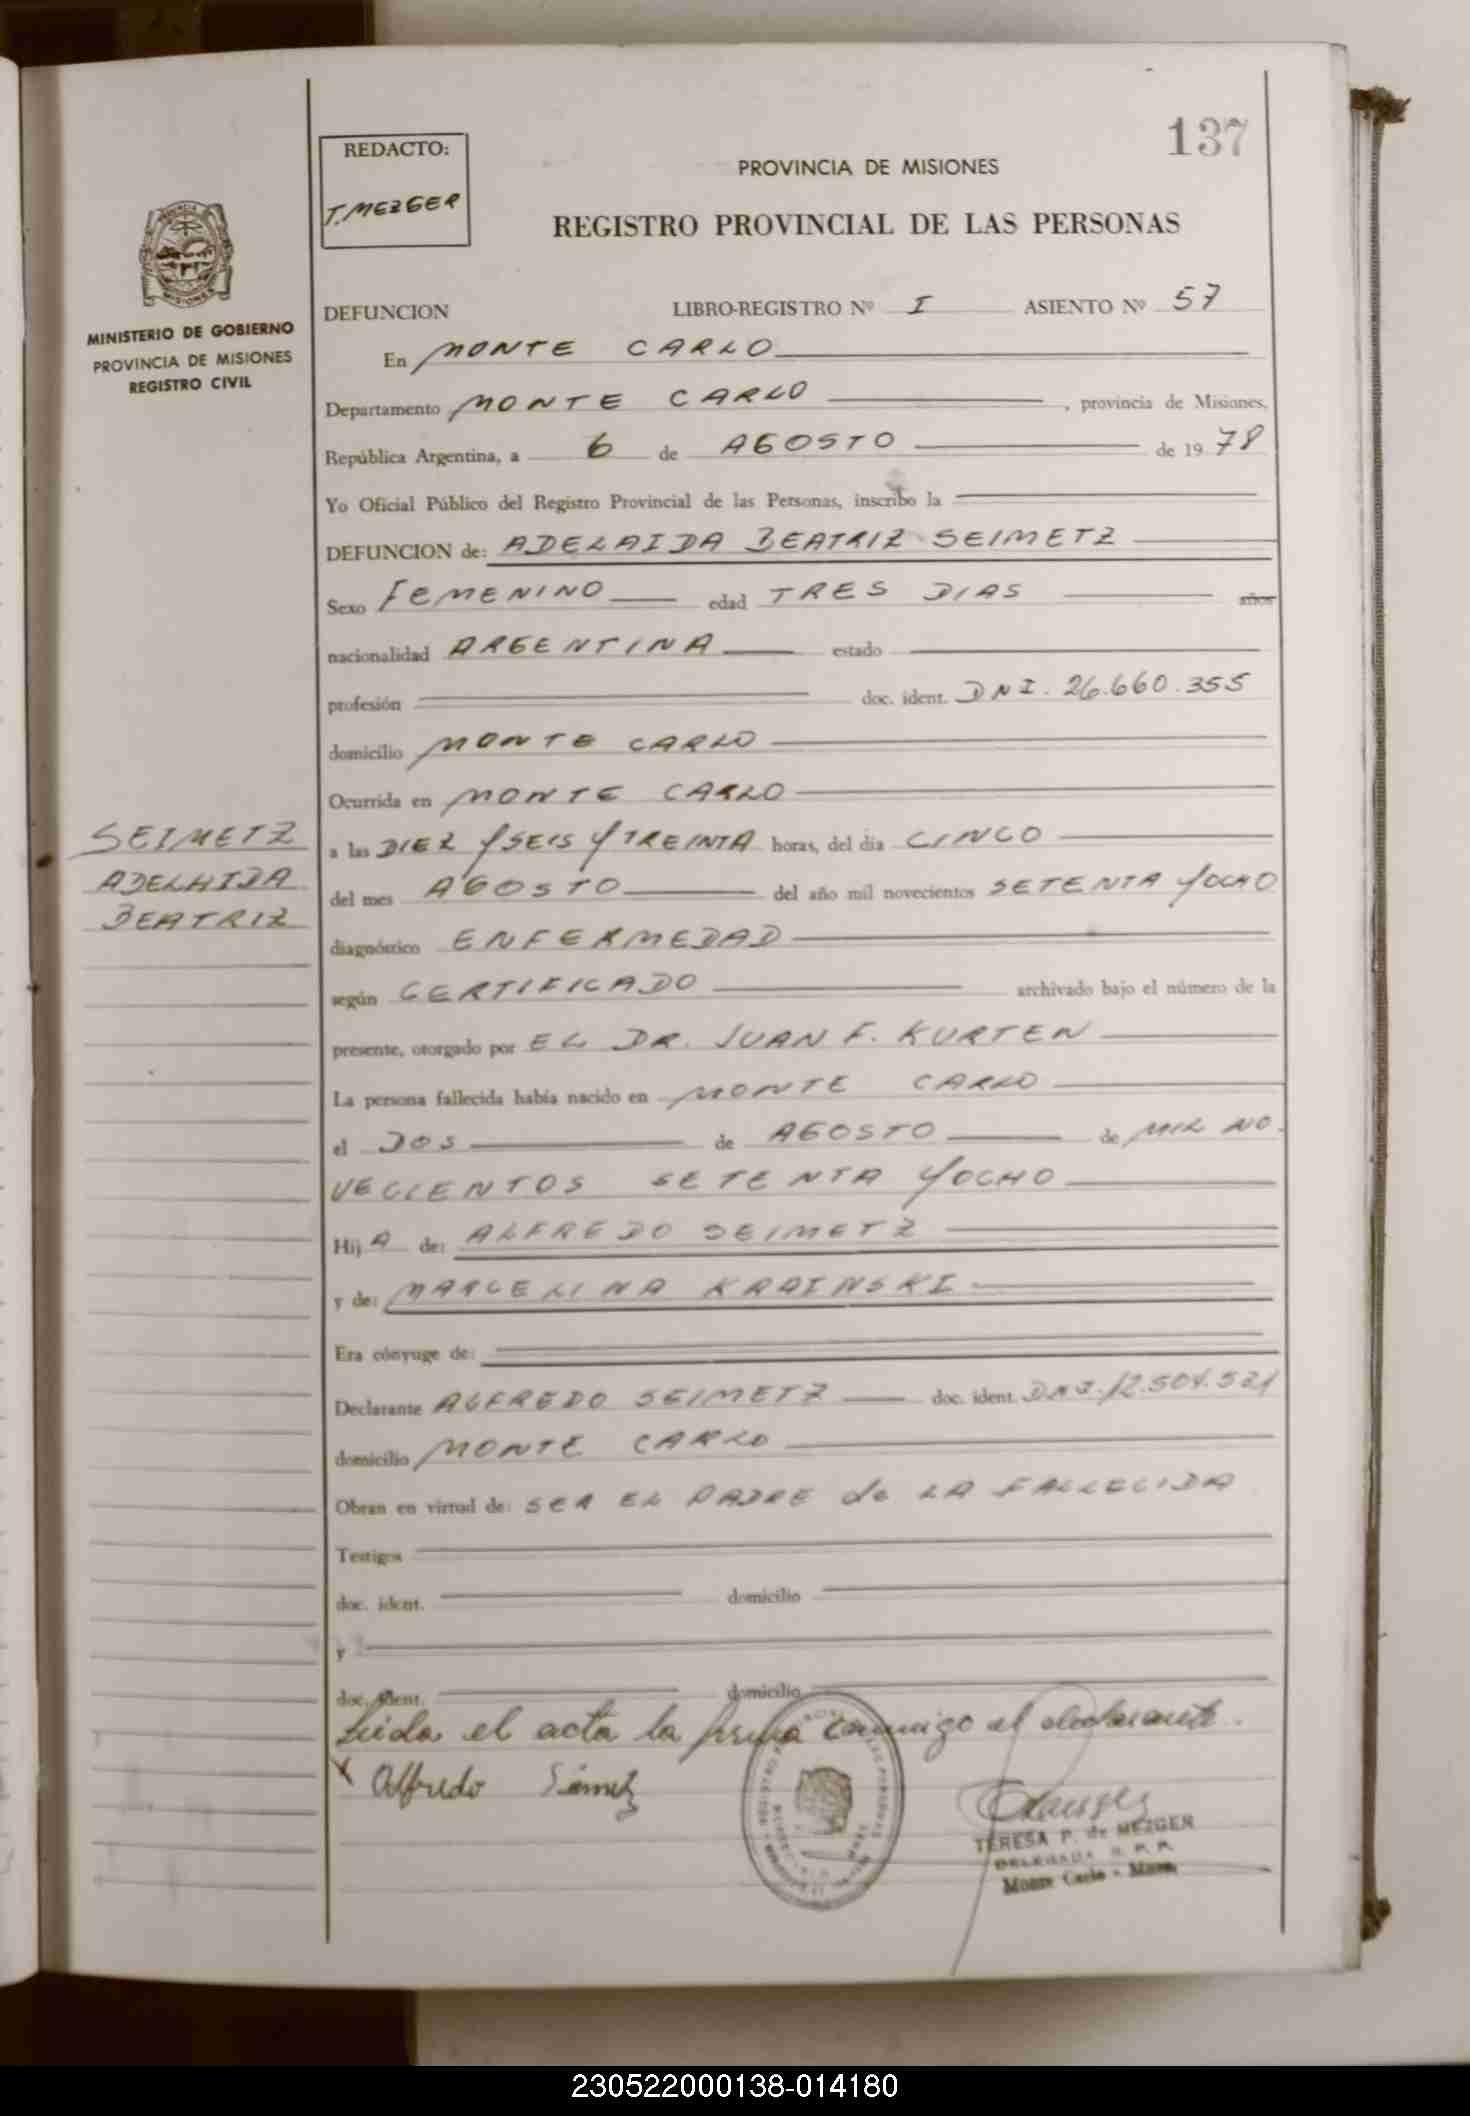 137
REDACTO:
T. MEZGER
PROVINCIA DE MISIONES
REGISTRO PROVINCIAL DE LAS PERSONAS
MINISTERIO DE GOBIERNO
PROVINCIA DE MISIONES
REGISTRO CIVIL
DEFUNCION LIBRO-REGISTRO Nº I ASIENTO Nº 57
En MONTE CARLO
Departamento MONTE CARLO, provincia de Misiones,
República Argentina, a 6 de AGOSTO de 1978
Yo Oficial Público del Registro Provincial de las Personas, inscribo la
DEFUNCION de: ADELAIDA BEATRIZ SEIMETZ
Sexo FEMENINO edad TRES DIAS años
nacionalidad ARGENTINA estado
profesión doc. ident. DNI. 26.660.355
domicilio MONTE CARLO
Ocurrida en MONTE CARLO
SEIMETZ
ADELAIDA
BEATRIZ
a las DIEZ Y SEIS Y TREINTA horas, del día CINCO
del mes AGOSTO del año mil novecientos SETENTA Y OCHO
diagnóstico ENFERMEDAD
según CERTIFICADO archivado bajo el número de la
presente, otorgado por EL DR. JUAN F. KURTEN
La persona fallecida había nacido en MONTE CARLO
el DOS de AGOSTO de MIL NO-
VECIENTOS SETENTA Y OCHO
Hij A de: ALFREDO SEIMETZ
y de: MARCELINA KRAINSKI
Era cónyuge de:
Declarante ALFREDO SEIMETZ doc. ident. DNI. 12.504.521
domicilio MONTE CARLO
Obran en virtud de: SER EL PADRE de LA FALLECIDA
Testigos
doc. ident. domicilio
y
doc. ident. domicilio
Leida el acta la firma conmigo el declarante.
x Alfredo Simetz
TERESA P. de MEZGER
DELEGADA R. P. P.
Monte Carlo - Mnes.
230522000138-014180